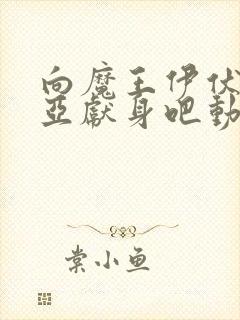 向魔王伊伏
亚獻身吧動
棠小鱼